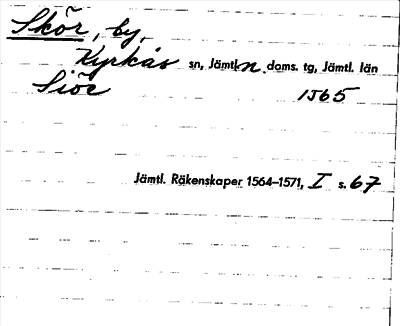 Skör, by,
Kyrkås sn, Jämtl. n. doms. tg, Jämtl. län
Siöe 1565
Jämtl. Räkenskaper 1564–1571, I s. 67